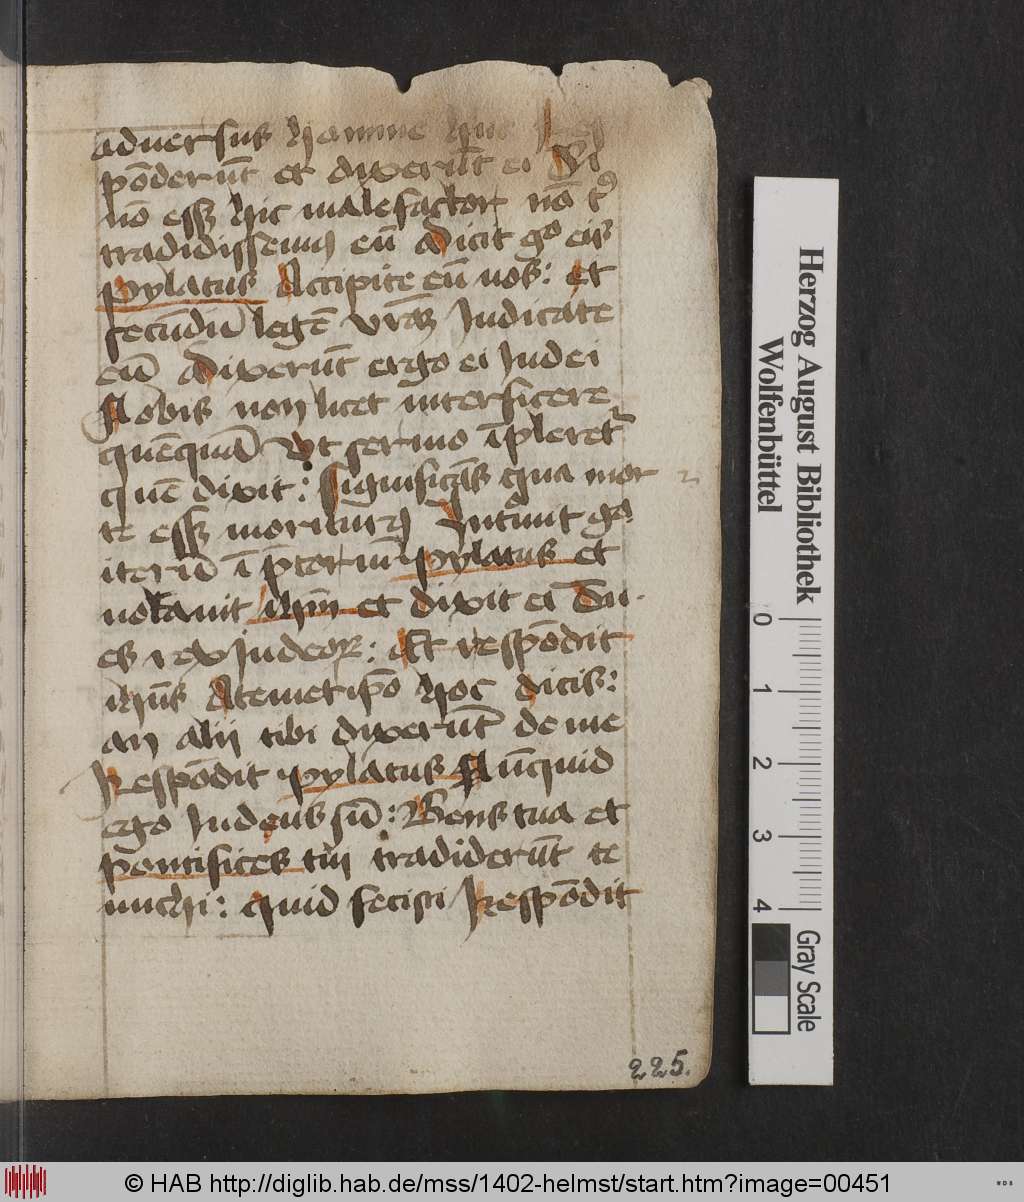 aduersus hominē hūc Res
pōderūt et dixerūt ei Si
nō esset hic malefactor nō t'
tradidissemus eū Dicit go eis
pylatus Accipite eū vos : et
secundū legē vrāȝ Judicate
eū Dixerūt ergo ei Judei
Nobis non licet interficere
quēquā Vt sermo īpleret'
quē dixit : significās qua mor
te esset moriturus Introiuit go
iterū ī ptoriū pylatus et
vokauit ihm et dixit ei Tu
es rex Judeoꝝ : Et respōdit
ihūs A temet ipō hoc dicis :
an alij tibi dixerūt de me
Respōdit pylatus Nūquid
ergo Judeus sū : Gens tua et
pontifices tui tradiderūt te
michi : quid fecisti Respōdit
225.
Herzog August Bibliothek
Wolfenbüttel
0 1 2 3 4
Gray Scale
© HAB http://diglib.hab.de/mss/1402-helmst/start.htm?image=00451